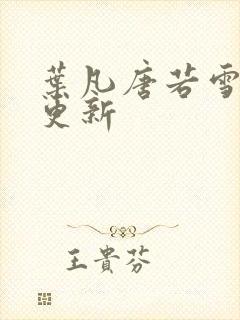 葉凡唐若雪
更新
王貴芬